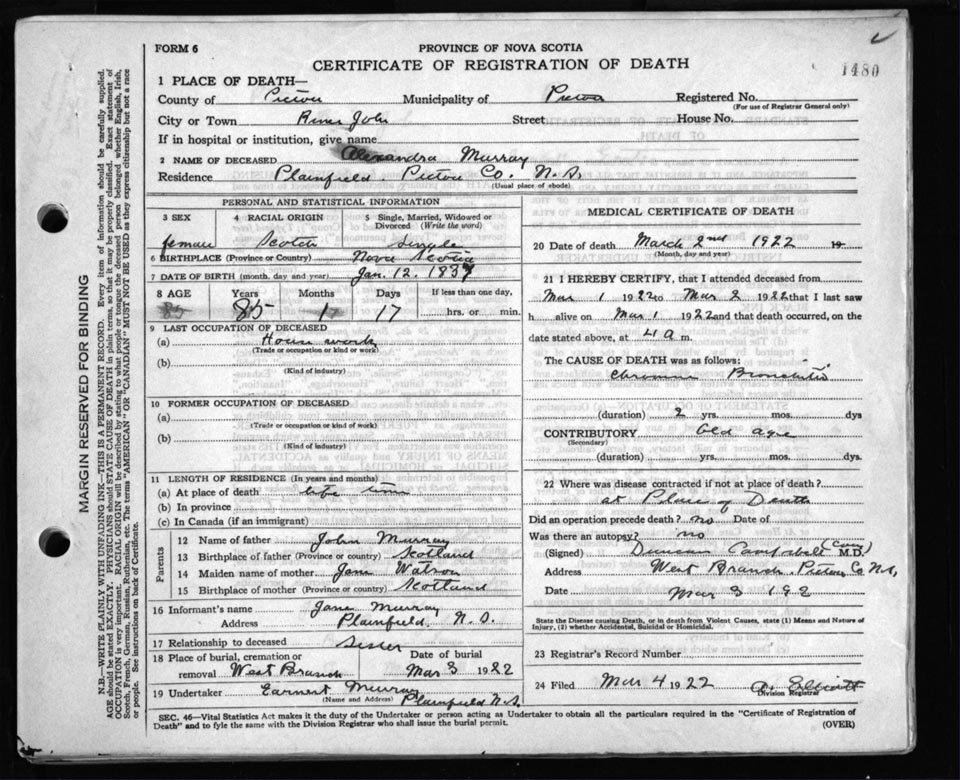 FORM 6
PROVINCE OF NOVA SCOTIA
CERTIFICATE OF REGISTRATION OF DEATH
1480
1 PLACE OF DEATH—
County of Pictou Municipality of Pictou Registered No.
(For use of Registrar General only)
City or Town River John Street House No.
If in hospital or institution, give name
2 NAME OF DECEASED Alexandra Murray
Residence Plainfield Pictou Co. N.S.
(Usual place of abode)
PERSONAL AND STATISTICAL INFORMATION
3 SEX 4 RACIAL ORIGIN 5 Single, Married, Widowed or Divorced (Write the word)
female Scotch Single
6 BIRTHPLACE (Province or Country) Nova Scotia
7 DATE OF BIRTH (month, day and year) Jan. 12. 1837
8 AGE Years Months Days If less than one day,
85 85 1 17 hrs. or min.
9 LAST OCCUPATION OF DECEASED
(a) House work
(Trade or occupation or kind or work)
(b)
(Kind of industry)
10 FORMER OCCUPATION OF DECEASED
(a)
(Trade or occupation or kind or work)
(b)
(Kind of industry)
11 LENGTH OF RESIDENCE (In years and months)
(a) At place of death life time
(b) In province
(c) In Canada (if an immigrant)
Parents
12 Name of father John Murray
13 Birthplace of father (Province or country) Scotland
14 Maiden name of mother Jane Watson
15 Birthplace of mother (Province or country) Scotland
16 Informant's name Jane Murray
Address Plainfield N.S.
17 Relationship to deceased Sister
18 Place of burial, cremation or removal West Branch Date of burial Mar 3 1922
19 Undertaker Earnest Murray
(Name and Address) Plainfield N.S.
MEDICAL CERTIFICATE OF DEATH
20 Date of death March 2nd 1922 19
(Month, day and year)
21 I HEREBY CERTIFY, that I attended deceased from
Mar 1 1922 to Mar 2 1922 that I last saw
h alive on Mar 1 1922 and that death occurred, on the
date stated above, at 4 a m.
The CAUSE OF DEATH was as follows:
Chronic Bronchitis
(duration) 2 yrs. mos. dys
CONTRIBUTORY Old age
(Secondary)
(duration) yrs. mos. dys.
22 Where was disease contracted if not at place of death?
at Place of Death
Did an operation precede death? no Date of
Was there an autopsy? no
(Signed) Duncan Campbell M.D.
Address West Branch Pictou Co N.S.
Date Mar 3 192
State the Disease causing Death, or in death from Violent Causes, state (1) Means and Nature of
Injury, (2) whether Accidental, Suicidal or Homicidal.
23 Registrar's Record Number
24 Filed Mar 4 1922 Elliott
Division Registrar
SEC. 46—Vital Statistics Act makes it the duty of the Undertaker or person acting as Undertaker to obtain all the particulars required in the "Certificate of Registration of
Death" and to fyle the same with the Division Registrar who shall issue the burial permit.
(OVER)
MARGIN RESERVED FOR BINDING
N.B.—WRITE PLAINLY WITH UNFADING INK—THIS IS A PERMANENT RECORD. Every item of information should be carefully supplied.
AGE should be stated EXACTLY. PHYSICIANS should STATE CAUSE OF DEATH in plain terms, so that it may be properly classified. Exact statement of
OCCUPATION is very important. RACIAL ORIGIN will be described by stating to what people or tongue the deceased person belonged whether English, Irish,
Scotch, French, German, Russian, Ruthenian, etc. The terms "AMERICAN" OR "CANADIAN" MUST NOT BE USED as they express citizenship but not a race
or people. See instructions on back of Certificate.